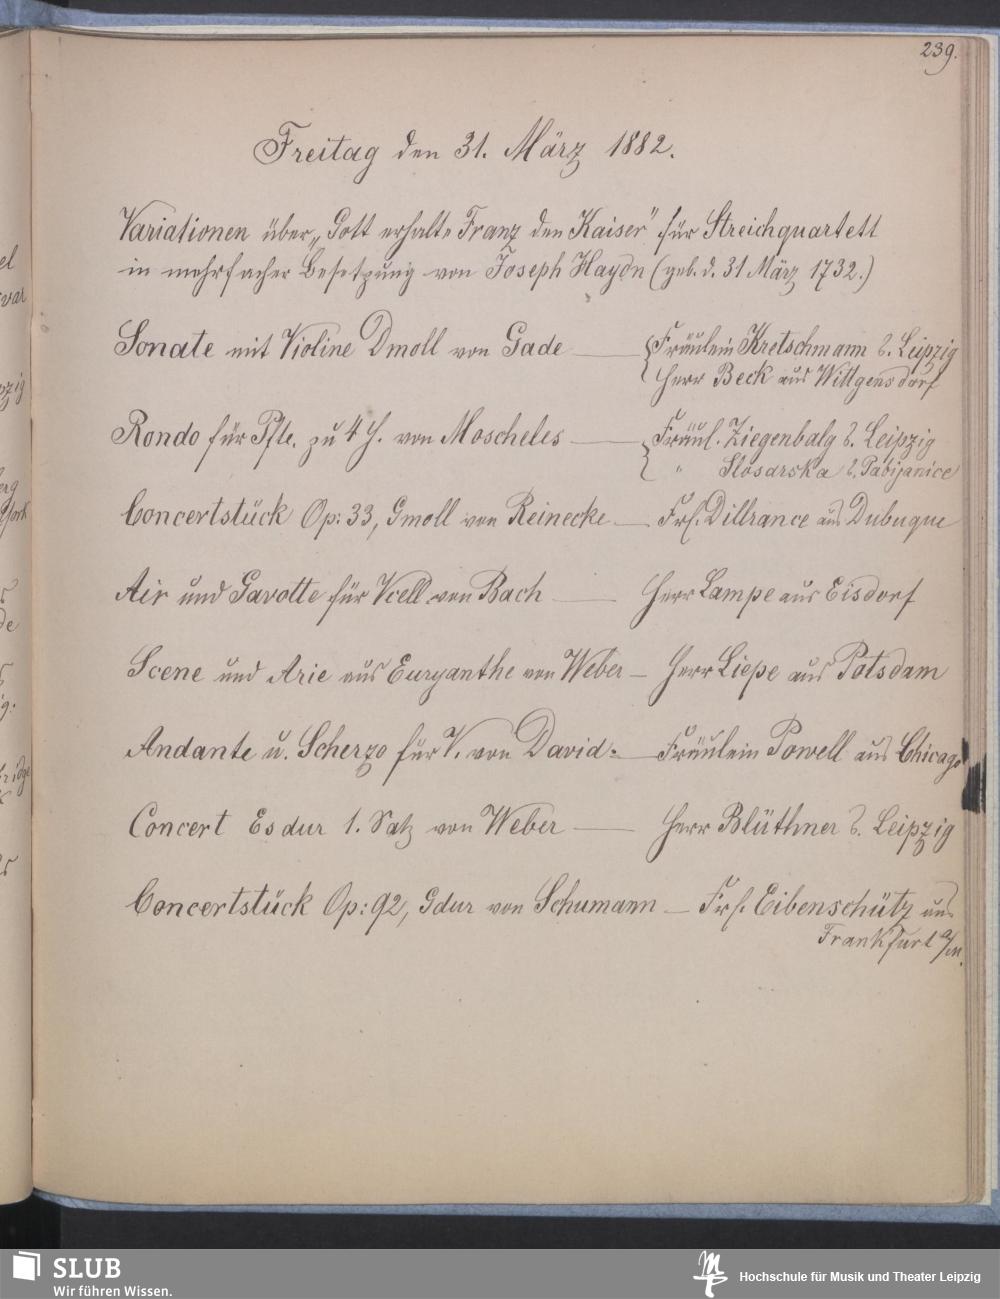 239.
Freitag den 31. März 1882.
Variationen über „Gott erhalte Franz den Kaiser" für Streichquartett
in mehrfacher Besetzung von Joseph Haydn (geb. d. 31 März 1732.)
Sonate mit Violine Dmoll von Gade — Fräulein Kretschmann a. Leipzig
Herr Beck aus Wittgensdorf
Rondo für Pfte. zu 4 H. von Moscheles — Fräul. Ziegenbalg a. Leipzig
" Slosarska a. Pabijanice
Concertstück Op: 33, Gmoll von Reinecke — Frl. Dillrance aus Dubuque
Air und Gavotte für Vcell. von Bach — Herr Lampe aus Eisdorf
Scene und Arie aus Euryanthe von Weber — Herr Liepe aus Potsdam
Andante u. Scherzo für V. von David — Fräulein Powell aus Chicago
Concert Esdur 1. Satz von Weber — Herr Blüthner a. Leipzig
Concertstück Op: 92, Gdur von Schumann — Frl. Eibenschütz aus
Frankfurt a/m.
SLUB
Wir führen Wissen.
Hochschule für Musik und Theater Leipzig